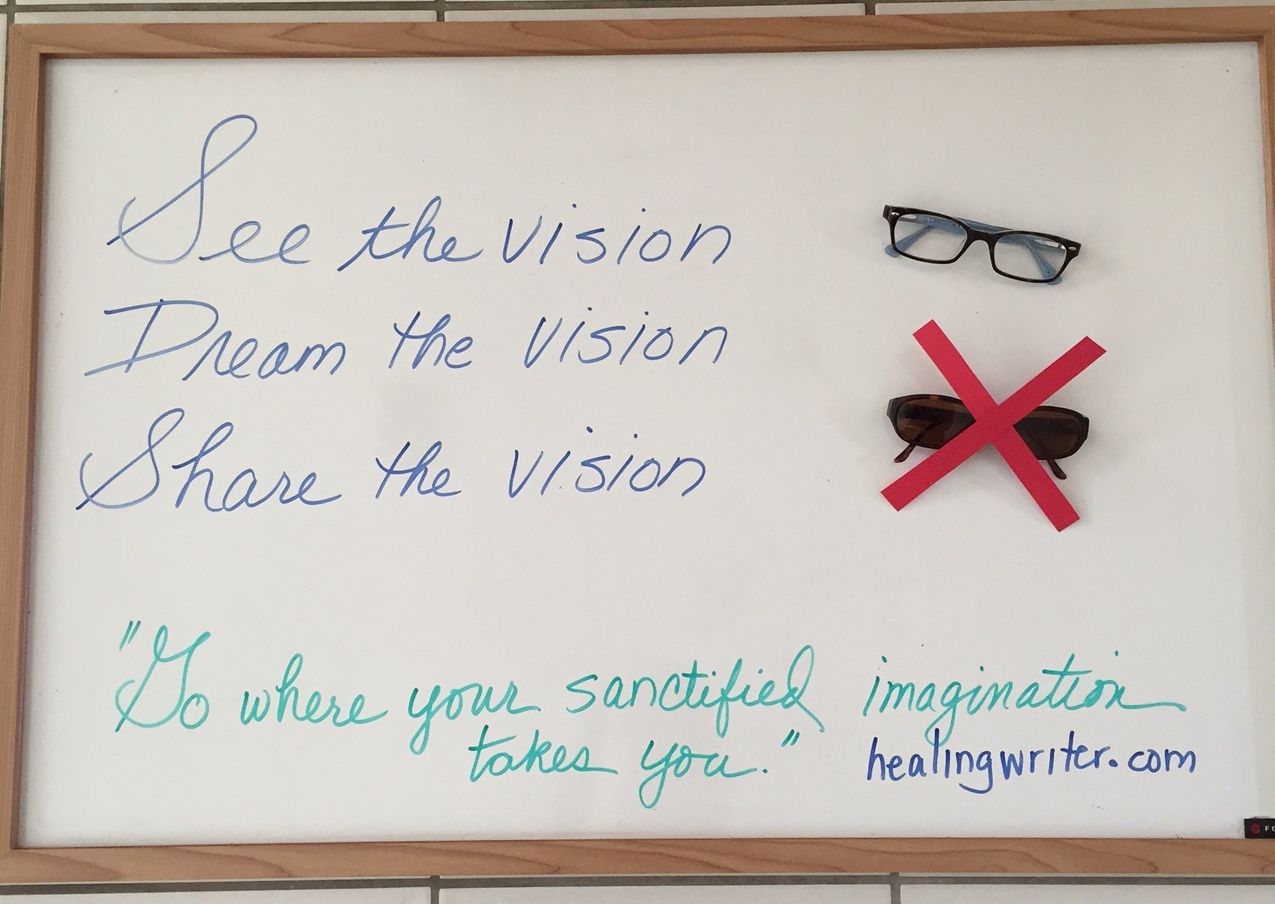 See the vision
Dream the vision
Share the vision
"Go where your sanctified imagination
takes you."
healingwriter.com